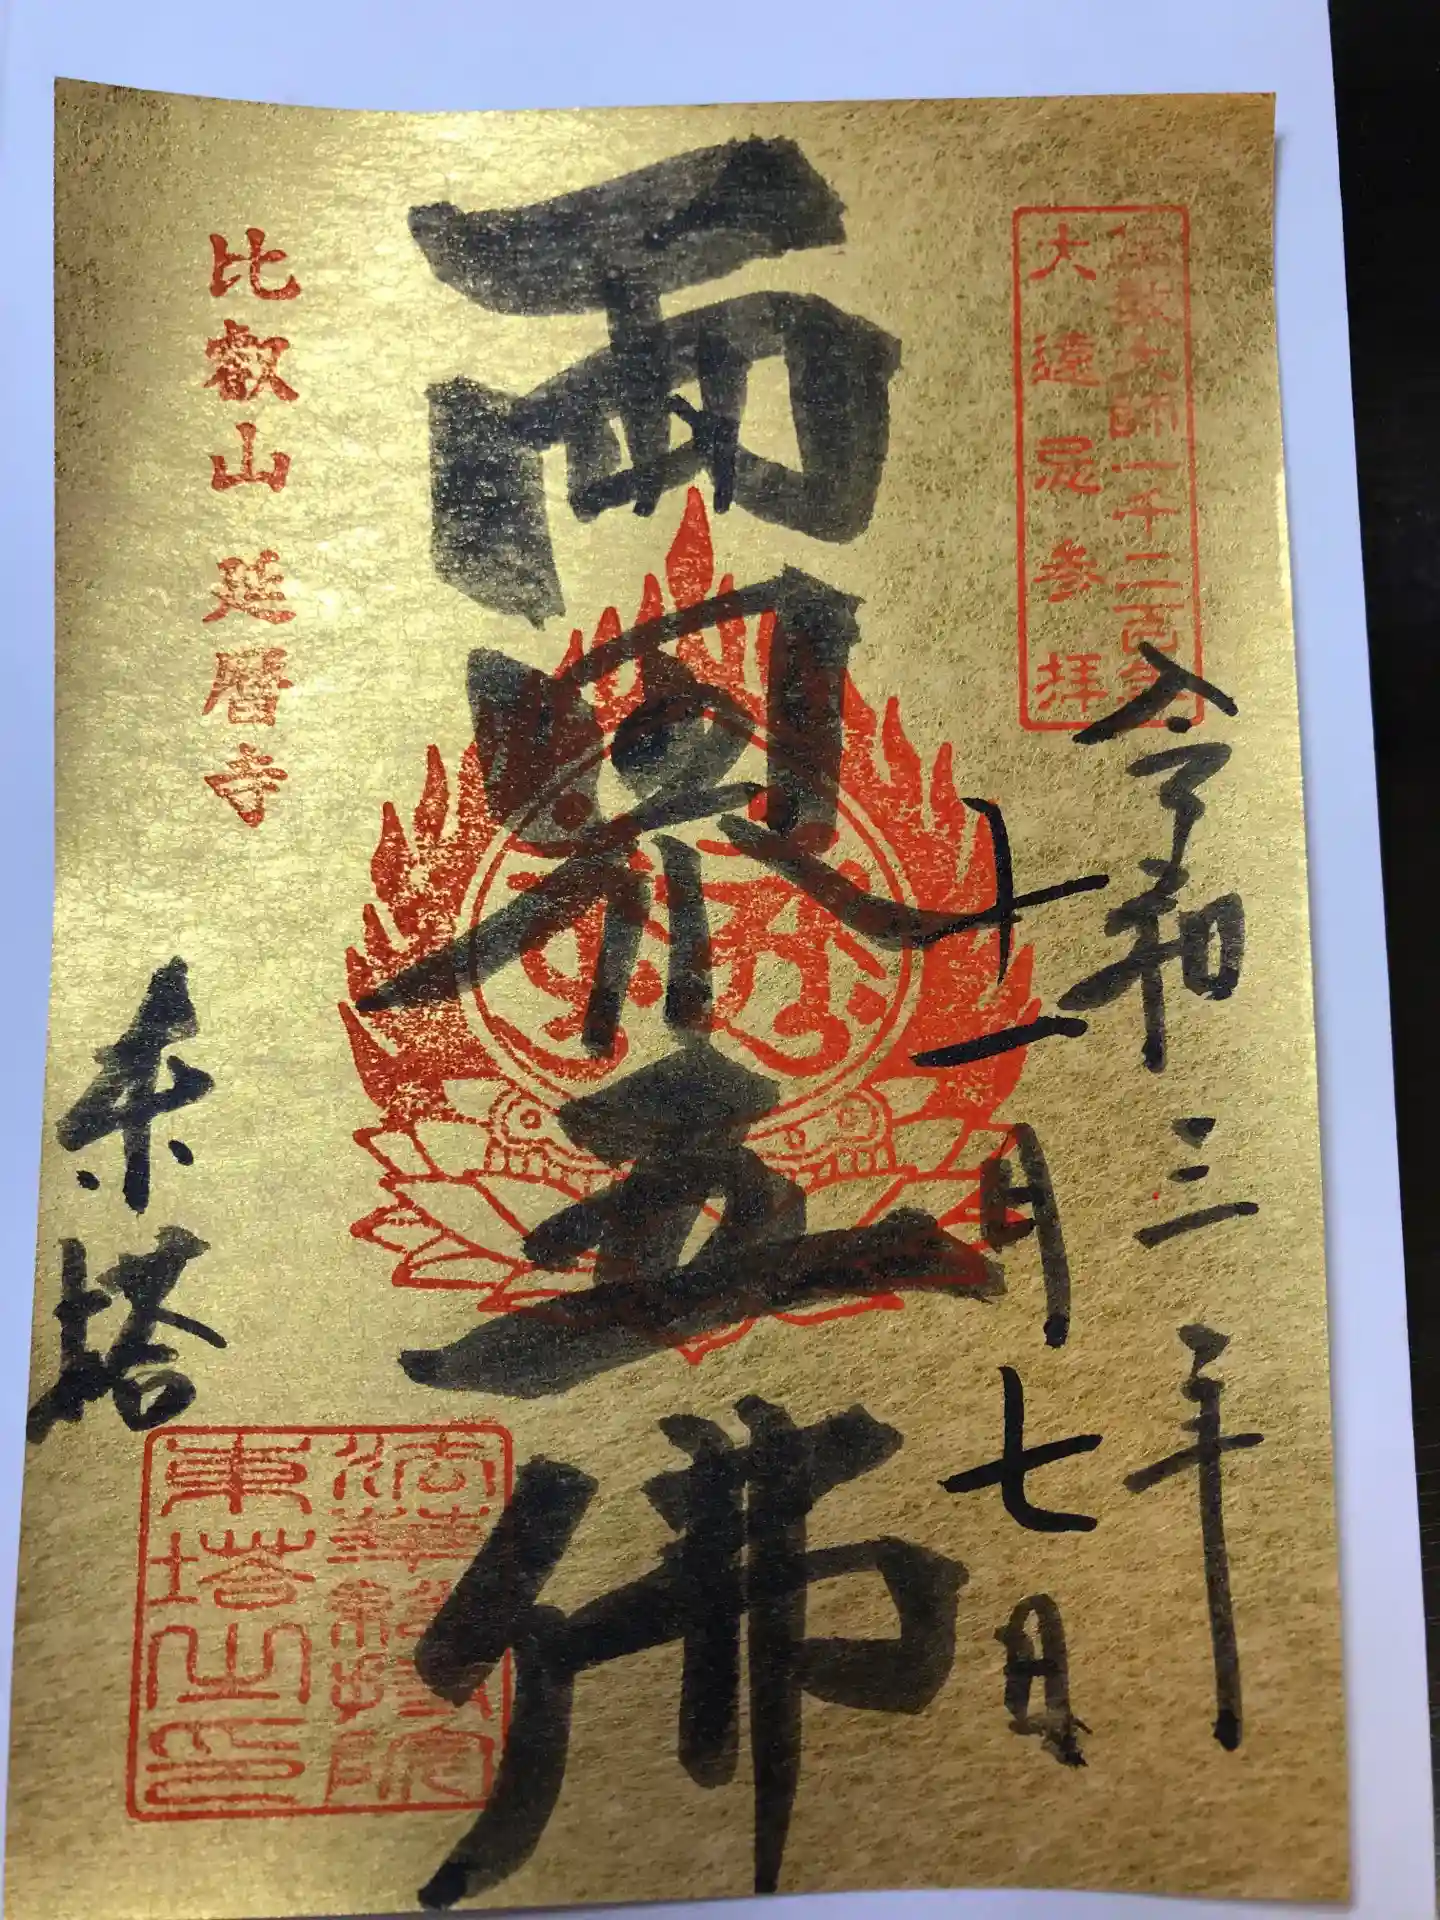 傳教大師一千二百年
大遠忌参拝
令和三年
十一月七日
両界五佛
比叡山 延暦寺
東塔
法華総持院
東塔之印